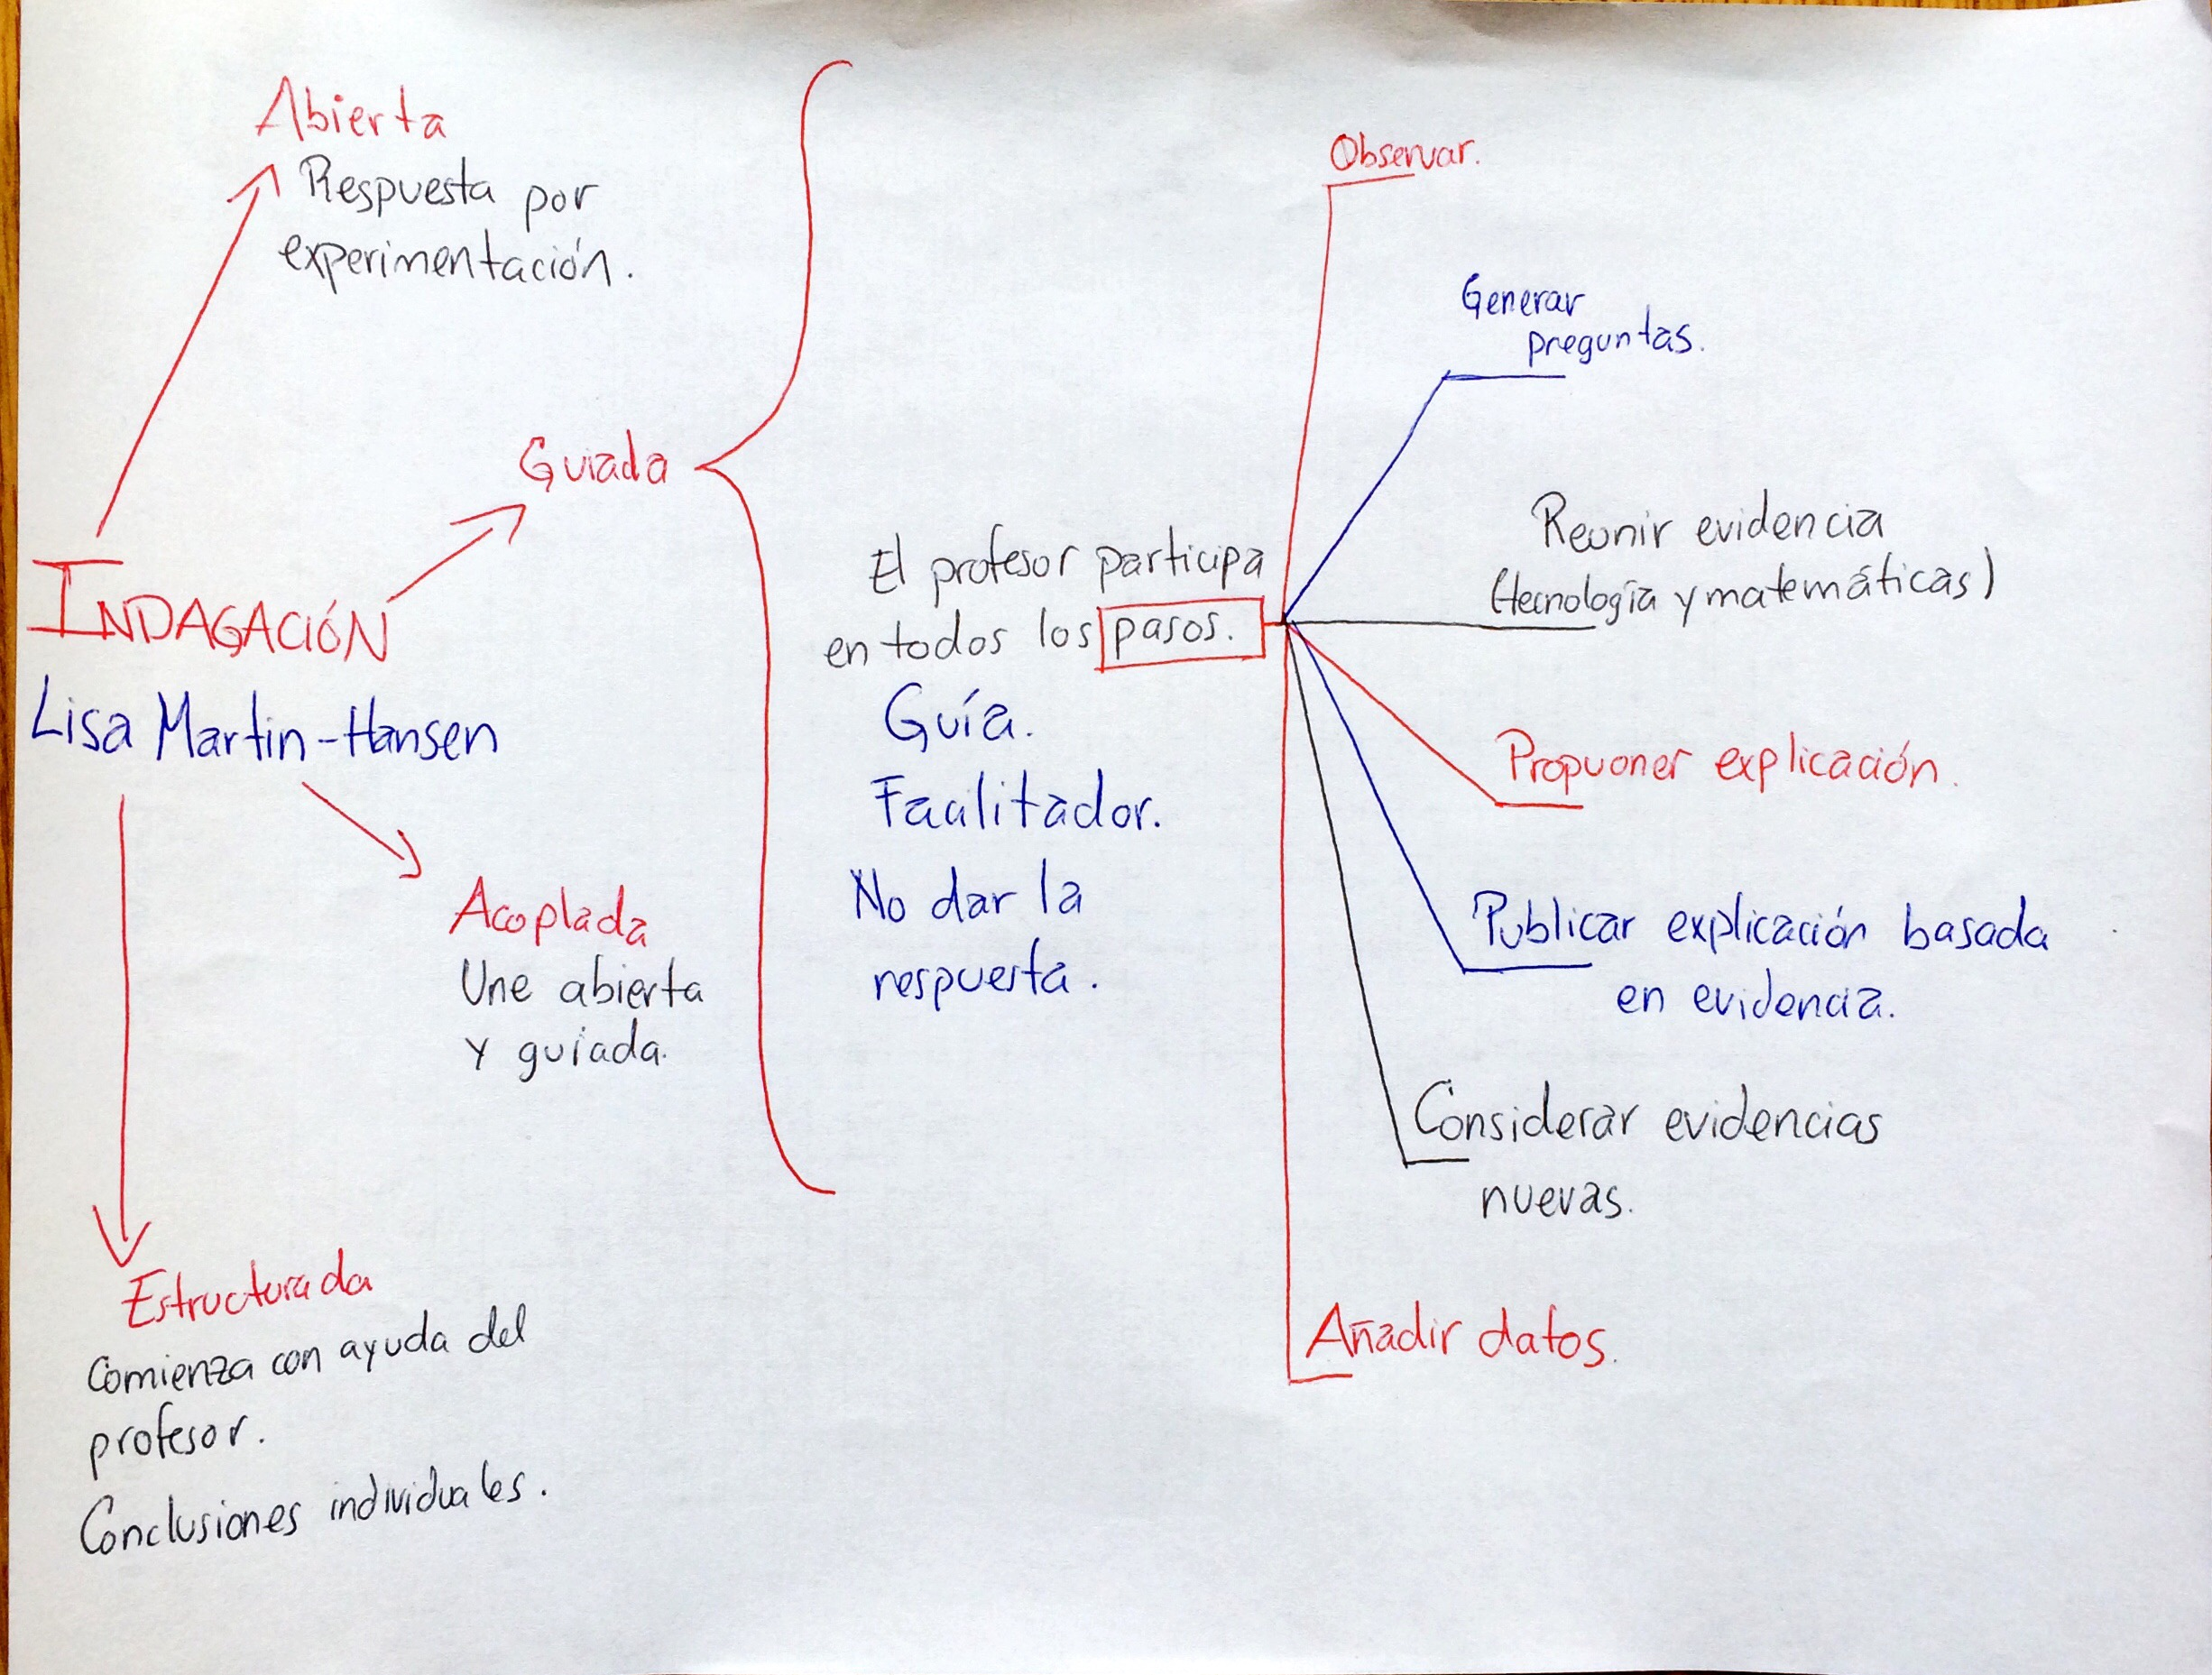 Abierta
Respuesta por
experimentación.
Guiada
INDAGACIÓN
Lisa Martin-Hansen
Acoplada
Une abierta
y guiada.
Estructurada
Comienza con ayuda del
profesor.
Conclusiones individuales.
El profesor participa
en todos los pasos.
Guía.
Facilitador.
No dar la
respuesta.
Observar.
Generar
preguntas.
Reunir evidencia
(tecnología y matemáticas)
Propuoner explicación.
Publicar explicación basada
en evidencia.
Considerar evidencias
nuevas.
Añadir datos.